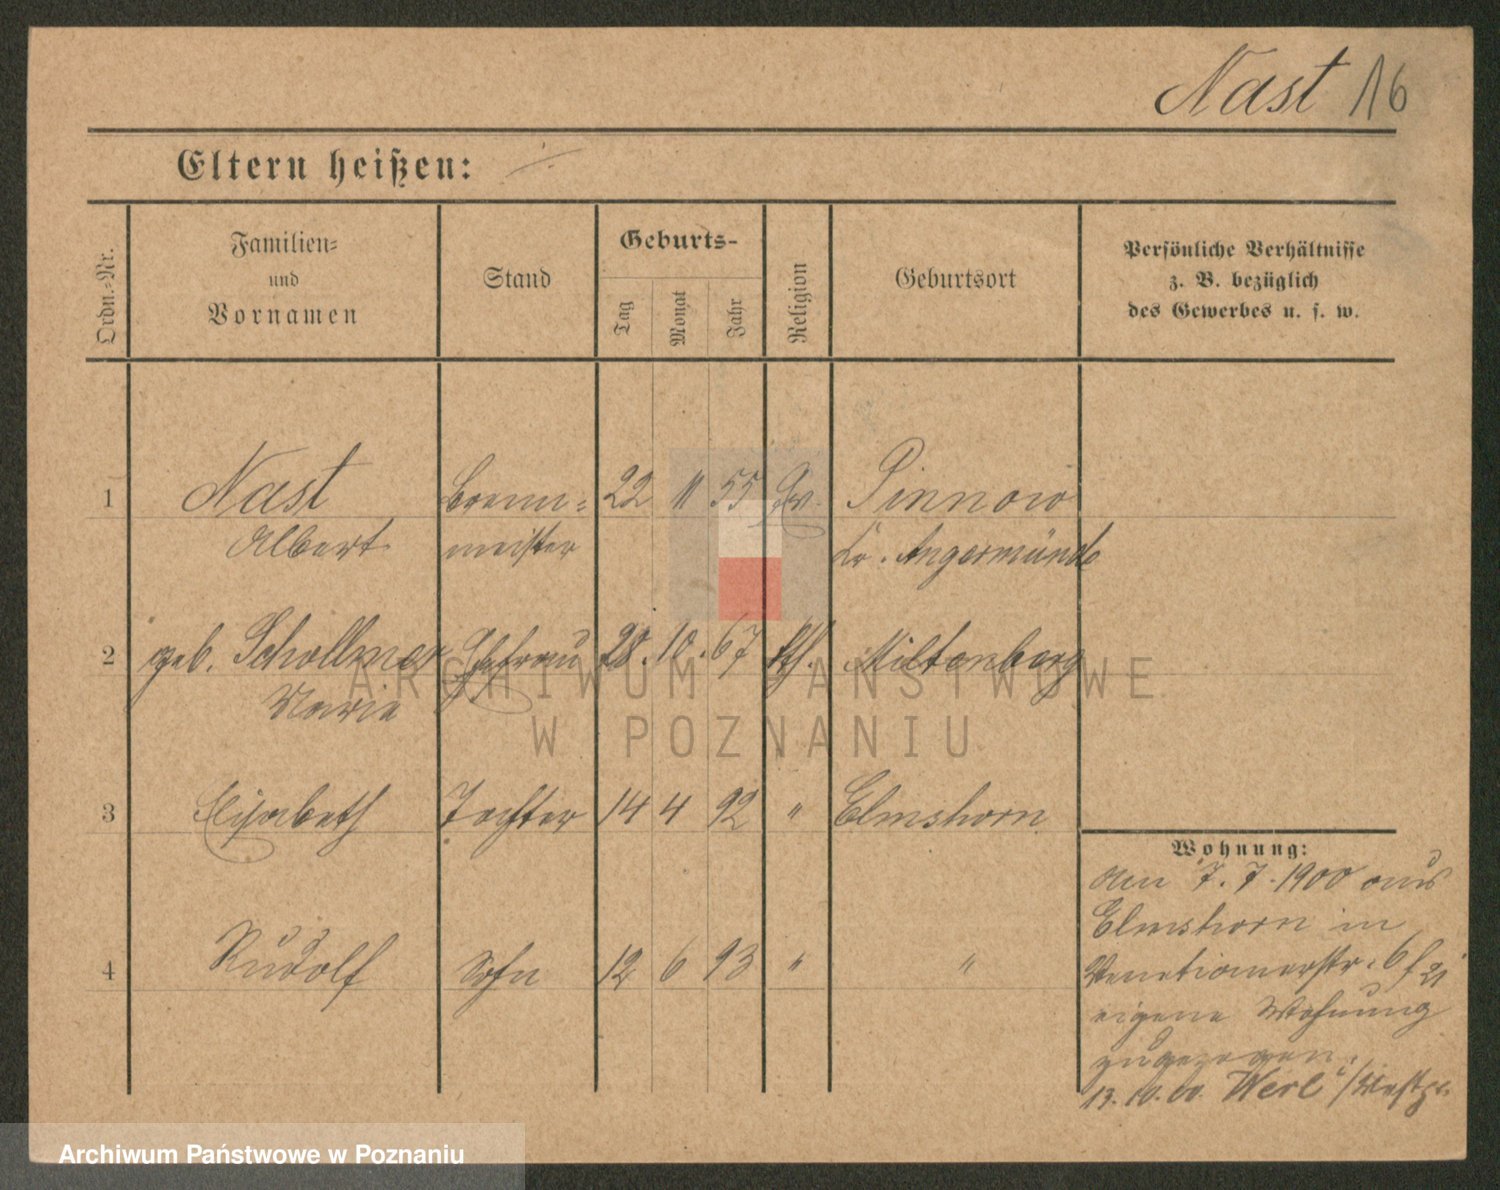 Nast 16
Eltern heißen: ·/·
Ordn.-Nr.
Familien-
und
Vornamen
Stand
Geburts-
Tag
Monat
Jahr
Religion
Geburtsort
Persönliche Verhältnisse
z. B. bezüglich
des Gewerbes u. s. w.
1 Nast Brenn= 22 11 55 Ev. Pinnow
Albert meister Kr. Angermünde
2 geb. Schollmer Ehefrau 28. 10. 67 kth. Miltenberg
Marie
3 Elisabeth Tochter 14 4 92 " Elmshorn
4 Rudolf Sohn 12 6 93 " "
Wohnung:
Am 7. 7. 1900 aus
Elmshorn in
Venetianerstr. 6
eigene Wohnung
zugezogen.
13. 10. 00. Werl
ARCHIWUM PAŃSTWOWE
W POZNANIU
Archiwum Państwowe w Poznaniu